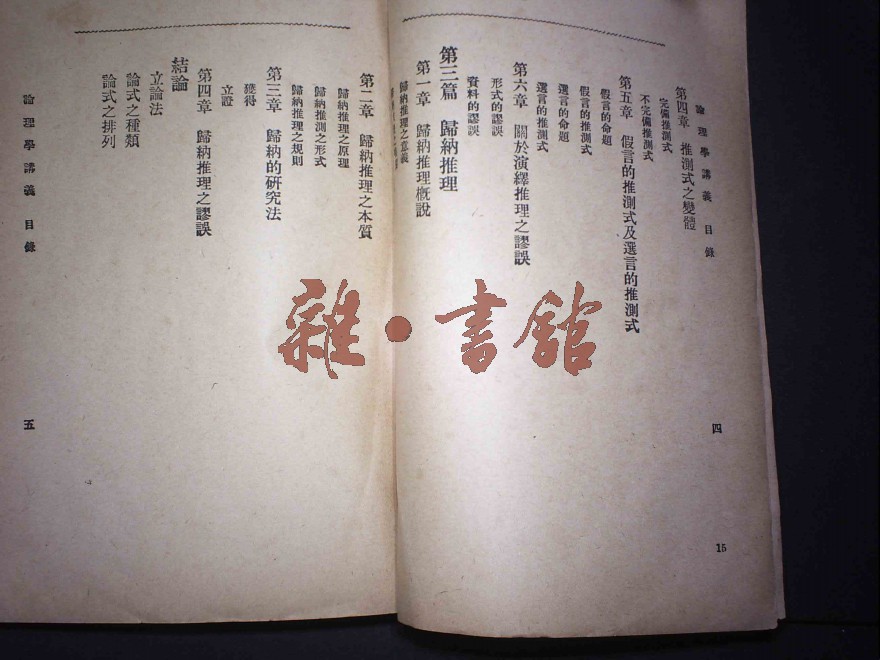 論理學講義 目錄
四
第四章 推測式之變體
完備推測式
不完備推測式
第五章 假言的推測式及選言的推測式
假言的命題
假言的推測式
選言的命題
選言的推測式
第六章 關於演繹推理之謬誤
形式的謬誤
資料的謬誤
第三篇 歸納推理
第一章 歸納推理概說
歸納推理之意義
第二章 歸納推理之本質
歸納推理之原理
歸納推測之形式
歸納推理之規則
第三章 歸納的研究法
獲得
立證
第四章 歸納推理之謬誤
結論
立論法
論式之種類
論式之排列
論理學講義 目錄
五
15
雜·書館